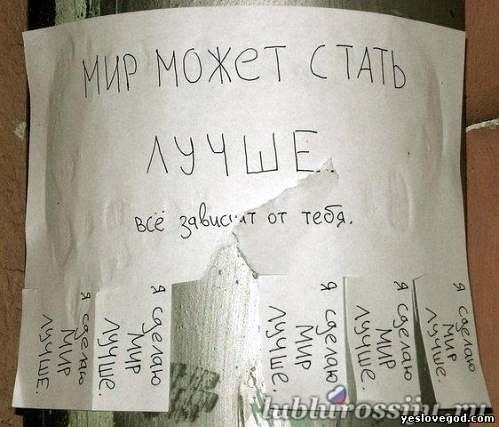 МИР МОЖЕТ СТАТЬ
ЛУЧШЕ..
всё зависит от тебя.
я сделаю
МИР
ЛУЧШЕ.
я сделаю
МИР
Лучше.
я сделаю
МИР
Лучше.
я сделаю
МИР
лучше.
я сделаю
МИР
лучше.
lublurossiju.ru
yeslovegod.com